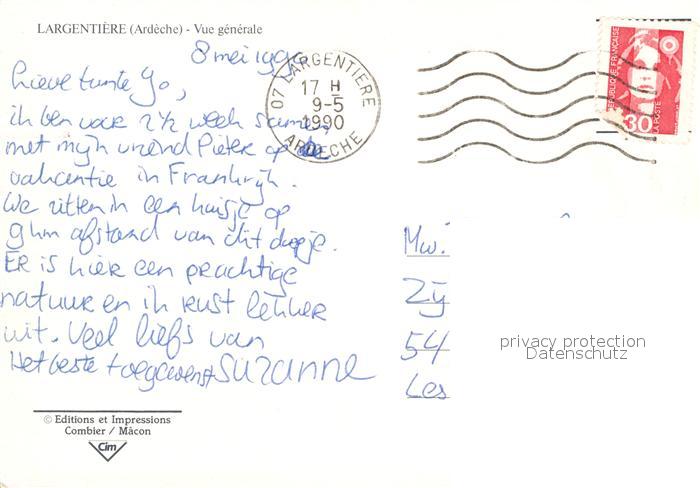 LARGENTIÈRE (Ardèche) - Vue générale
8 mei 1990
Lieve tante Jo,
ik ben voor 2½ week samen
met mijn vriend Pieter op de
vakantie in Frankrijk.
We zitten in een huisje op
9 km afstand van dit dorpje.
Er is hier een prachtige
natuur en ik rust lekker
uit. Veel liefs van
Het beste toegewenst SUZANNE
© Editions et Impressions
Combier / Mâcon
Cim
07 LARGENTIERE
17 H
9-5
1990
ARDECHE
REPUBLIQUE FRANÇAISE
LA POSTE
30
Mw.
Zij
54
Les
privacy protection
Datenschutz